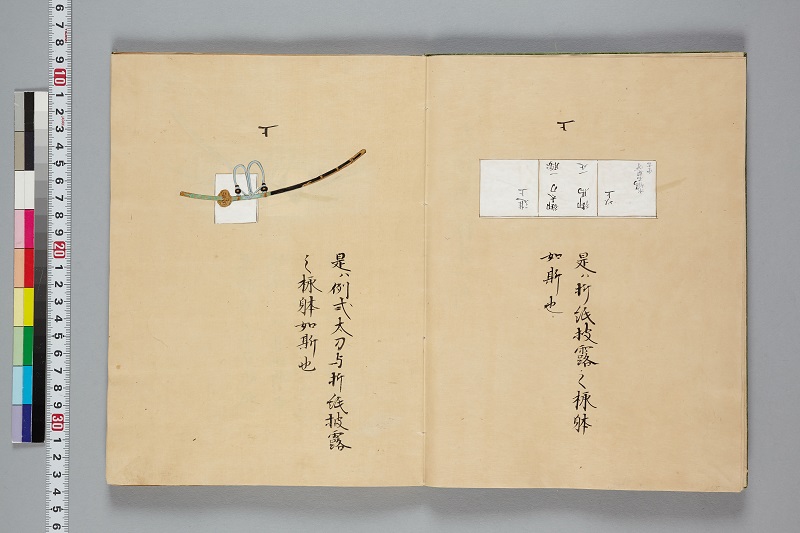 上
進上
御太刀 一腰
御馬 一疋
以上
是ハ折紙披露之様躰
如斯也
上
是ハ例式太刀与折紙披露
之様躰如斯也
6 7 8 9 10 1 2 3 4 5 6 7 8 9 20 1 2 3 4 5 6 7 8 9 30 1 2 3 4 5 6